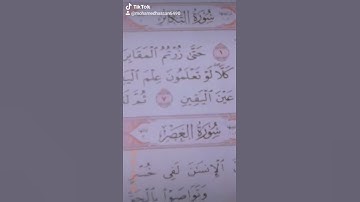 TikTok
سُورَةُ التَّكَاثُرِ
حَتَّىٰ زُرْتُمُ الْمَقَابِرَ
كَلَّا لَوْ تَعْلَمُونَ عِلْمَ الْيَقِينِ
عَيْنَ الْيَقِينِ ٧ ثُمَّ
سُورَةُ الْعَصْرِ
الْإِنسَانَ لَفِي خُسْرٍ
وَتَوَاصَوْا بِالْحَقِّ